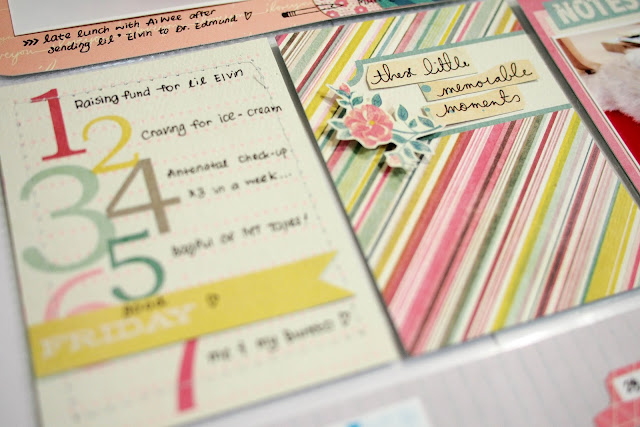 >>> late lunch with Ai Wee after
sending lil' Elvin to Dr. Edmund ♡
NOTES
these little
memorable
moments
1 Raising fund for Lil Elvin
2 Craving for ice-cream
3
4 Antenatal check-up
x3 in a week...
5 of MY
6
FRIDAY
7 me & my